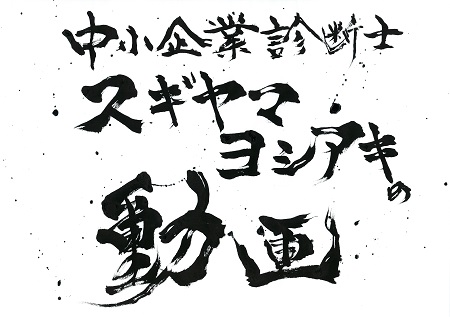 中小企業診断士
スギヤマ
ヨシアキの
動画